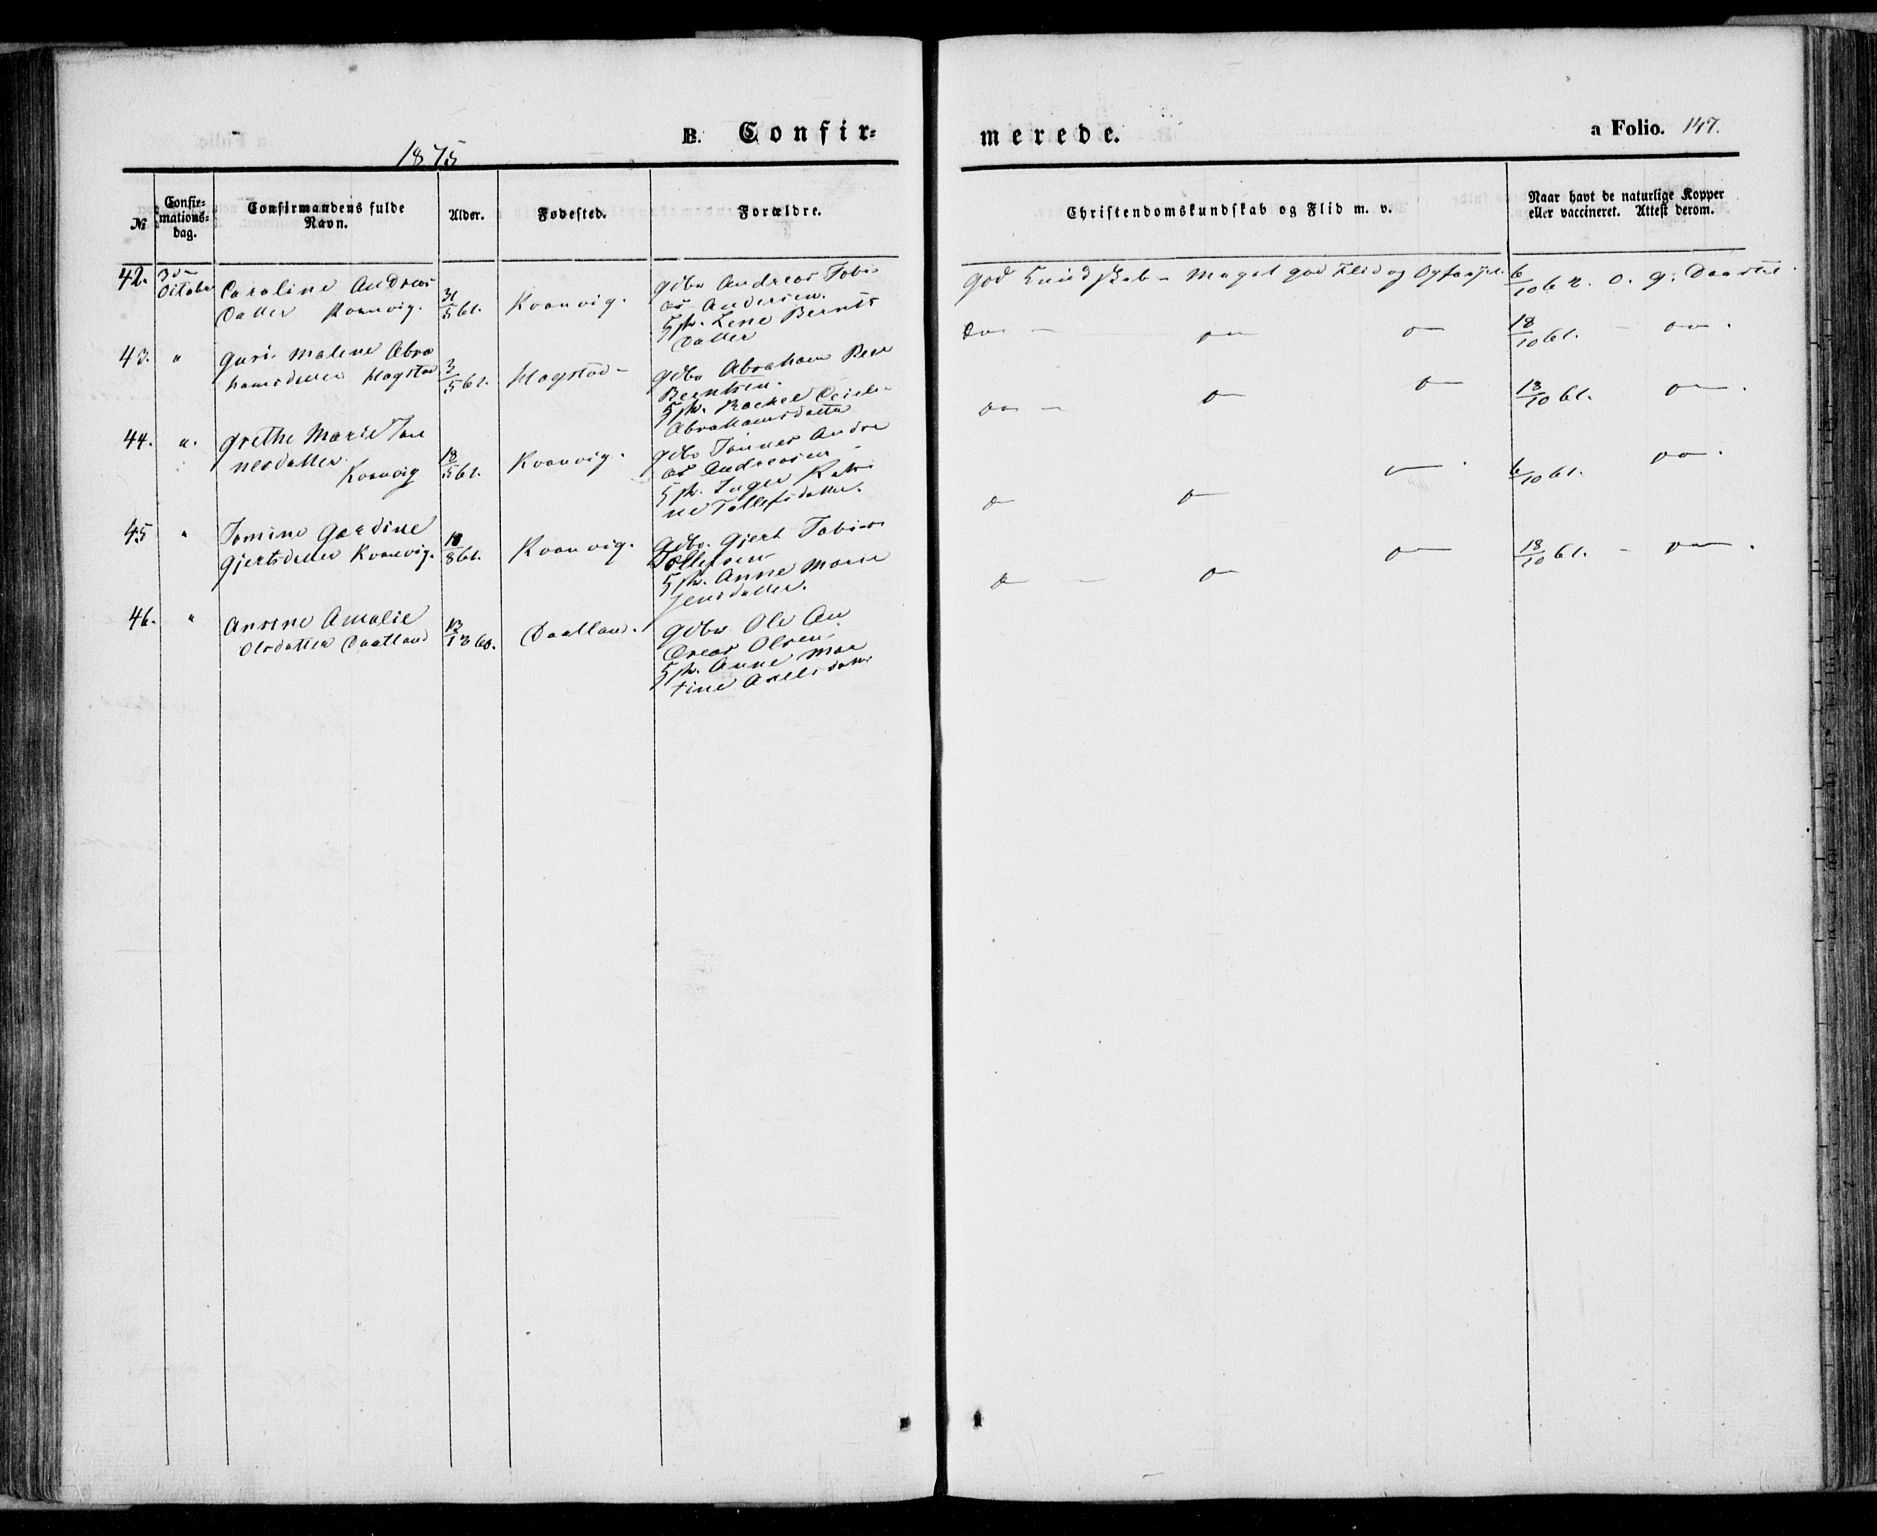 B. Confir-
merede.
a Folio. 147.
1875
No
Confir-
mations-
dag.
Confirmandens fulde
Navn.
Alder.
Fødested.
Forældre.
Christendomskundskab og Flid m. v.
Naar havt de naturlige Kopper
eller vaccineret. Attest derom.
42. 3die October Caroline Andreas
datter Kvanvig. 31/5 61. Kvanvig.
gdbr Andreas Tobi
as Andersen.
Hst. Lene Bernts
datter
God Kundskab - Meget god Flid og 6/10 62. o. g:
43. " Guri Malene Abra
hamsdatter Hogstad 3/5 61. Hogstad
gdbr Abraham Beer
Berntsen.
Hst. Rachel
Abrahamsdatter
do - do do 18/10 61. - do.
44. " Grethe Marie Tøn
nesdatter
Kvanvig 18/5 61. Kvanvig.
gdbr Tønnes Andre
as Andreasen
Hst. Inger Kat
ne Tollefsdatter.
do - do do 18/10 61. do.
45 " Tomine Gardine
Gjertsdatter Kvanvig. 8 61. Kvanvig.
gdbr. Gjert Tobias
Tollefsen
Hst. Anne Marie
Jensdatter.
do do do 6/10 61. do.
46. " Ansine Amalie
Olsdatter Daatland 12 60. Daatland.
gdbr. Ole An
dreas Olsen
Hst. Anne Mar
tine Axelsdatter
do - do do 18/10 61. - do.